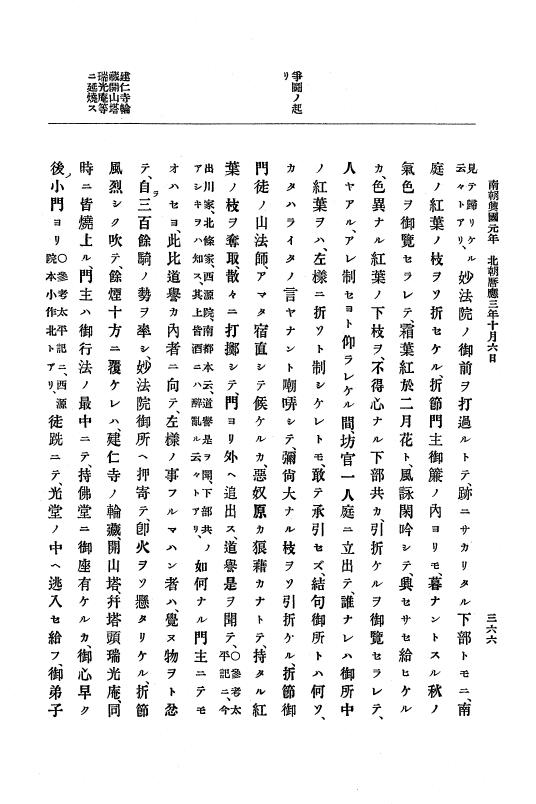 南朝興國元年　北朝曆應三年十月六日
三六六
爭鬪ノ起
リ
建仁寺輪
藏開山塔
瑞光庵等
ニ延燒ス
見テ歸リケル
云々トアリ、
妙法院ノ御前ヲ打過ルトテ、跡ニサカリタル下部トモニ、南
庭ノ紅葉ノ枝ヲソ折セケル、折節門主御簾ノ內ヨリモ、暮ナントスル秋ノ
氣色ヲ御覽セラレテ、霜葉紅於二月花ト、風詠閑吟シテ、興セサセ給ヒケル
カ、色異ナル紅葉ノ下枝ヲ、不得心ナル下部共カ、引折ケルヲ御覽セラレテ、
人ヤアル、アレ制セヨト仰ラレケル間、坊官一人庭ニ立出テ、誰ナレハ御所中
ノ紅葉ヲハ、左樣ニ折ソト制シケレトモ、敢テ承引セス、結句御所トハ何ソ、
カタハライタノ言ヤナント嘲哢シテ、彌尙大ナル枝ヲソ引折ケル、折節御
門徒ノ山法師、アマタ宿直シテ候ケルカ、惡奴原カ狼藉カナトテ、持タル紅
葉ノ枝ヲ奪取散々ニ打擲シテ、門ヨリ外ヘ追出ス、道譽是ヲ聞テ、
〇參考太
平記ニ、今
出川家、北條家、西源院、南都本云、道譽是ヲ聞、下部共ノ
アシキヲハ知ス、其上皆酒ニハ醉亂ル云々トアリ、
如何ナル門主ニテモ
オハセヨ、此比道譽カ內者ニ向テ、左樣ノ事フルマハン者ハ、覺ヌ物ヲト忿
テ、自ヲ三百餘騎ノ勢ヲ率シ、妙法院御所ヘ押寄テ、卽火ヲソ懸タリケル、折節
風烈シク吹テ、餘煙十方ニ覆ケレハ、建仁寺ノ輪藏、開山塔、幷塔頭瑞光庵、同
時ニ皆燒上ル、門主ハ御行法ノ最中ニテ、持佛堂ニ御座有ケルカ、御心早ク
後ノ小門ヨリ
〇參考太平記ニ、西源
院本小作北トアリ、
徒跣ニテ、光堂ノ中ヘ逃入セ給フ、御弟子